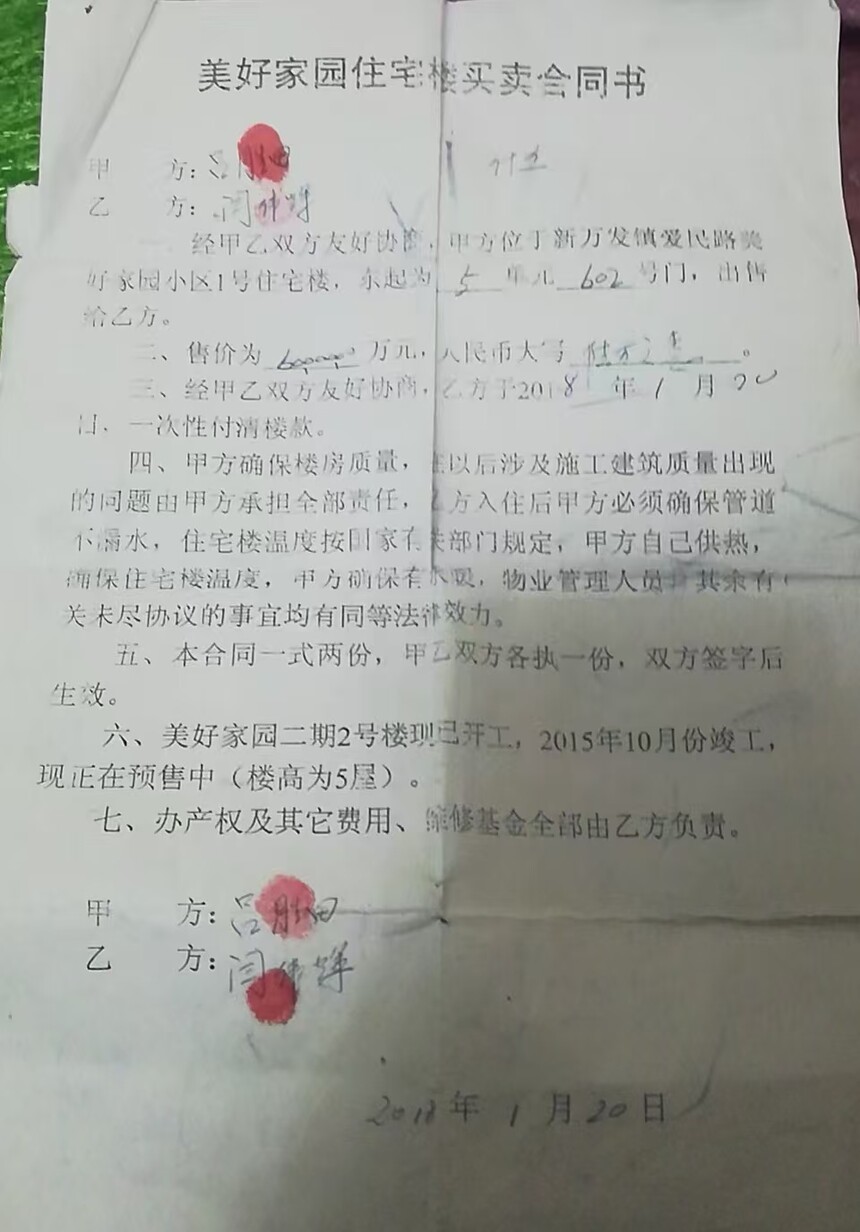 美好家园住宅楼买卖合同书
甲 方：吕胜田
乙 方：闫
一、经甲乙双方友好协商，甲方位于新万发镇爱民路美
好家园小区1号住宅楼，东起为 5 单元 602 号门，出售
给乙方。
二、售价为 万元，人民币大写 陆万 。
三、经甲乙双方友好协商，乙方于2018年1月20
日，一次性付清楼款。
四、甲方确保楼房质量，在以后涉及施工建筑质量出现
的问题由甲方承担全部责任，乙方入住后甲方必须确保管道
不漏水，住宅楼温度按国家有关部门规定，甲方自己供热，
确保住宅楼温度，甲方确保有水暖，物业管理人员。其余有
关未尽协议的事宜均有同等法律效力。
五、本合同一式两份，甲乙双方各执一份，双方签字后
生效。
六、美好家园二期2号楼现已开工，2015年10月份竣工，
现正在预售中（楼高为5层）。
七、办产权及其它费用、维修基金全部由乙方负责。
甲 方：吕胜田
乙 方：闫
2018年 1 月 20 日